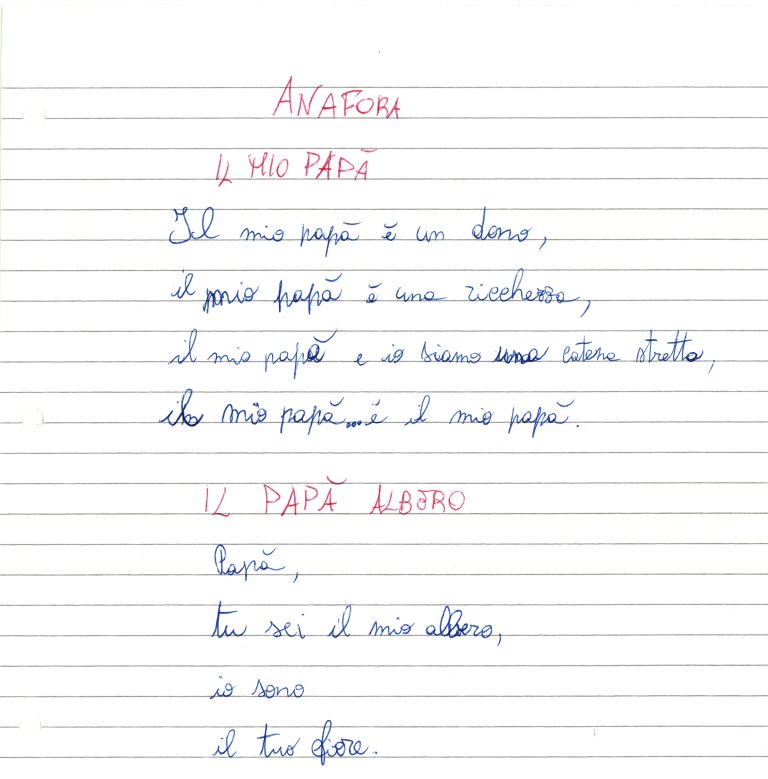 ANAFORA
IL MIO PAPĂ
Il mio papă ĕ un dono,
il mio papă ĕ una ricchezza,
il mio papă e io siamo una catena stretta,
il mio papă...ĕ il mio papă.
IL PAPĂ ALBERO
Papă,
tu sei il mio albero,
io sono
il tuo fiore.